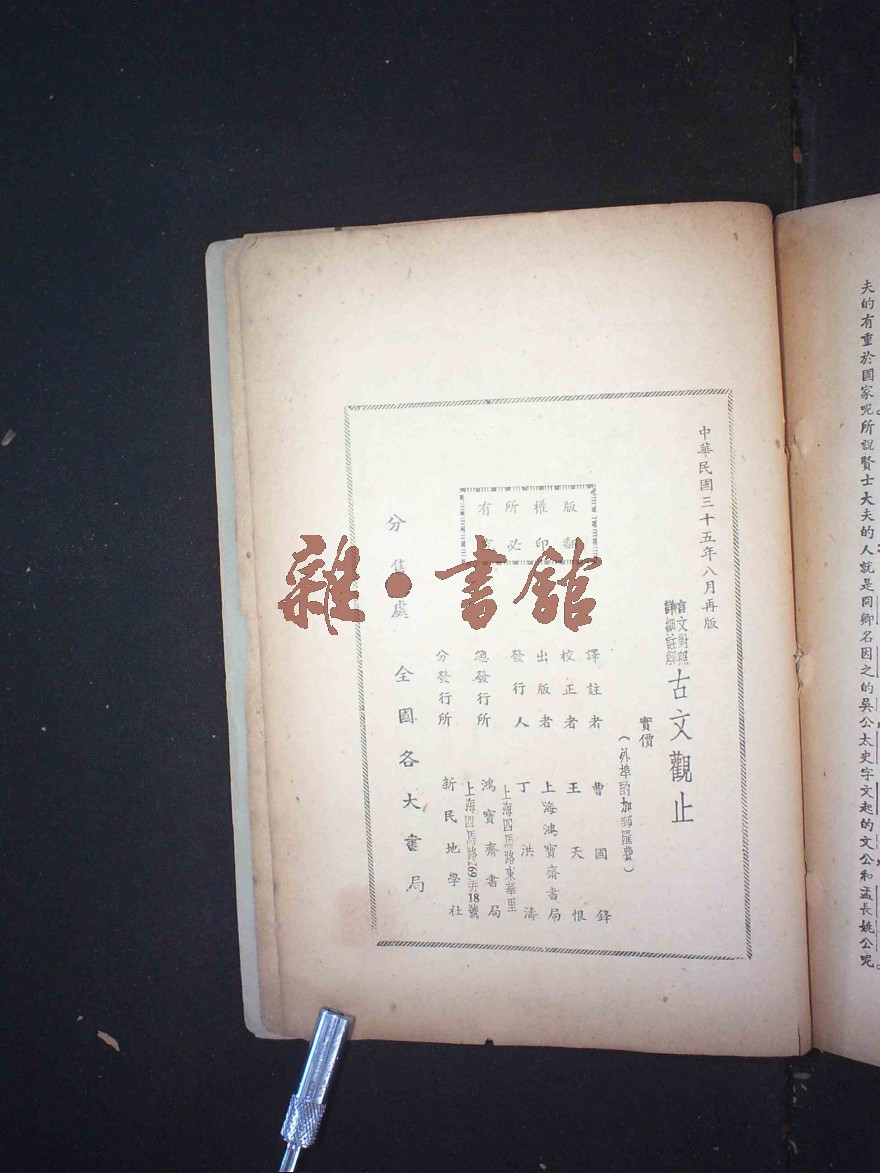 夫的有重於國家呢。所說賢士大夫的人就是同卿名因之的吳公太史字文起的文公和孟長姚公呢。
中華民國三十五年八月再版
言文對照
詳細註解
古文觀止
實價
(外埠酌加郵匯費)
版權所有
翻印必
譯註者 曹國鋒
校正者 王天恨
出版者 上海鴻寶齋書局
發行人 丁洪濤
上海四馬路東華里
總發行所 鴻寶齋書局
上海四馬路269弄18號
分發行所 新民地學社
分售處 全國各大書局
雜·書館